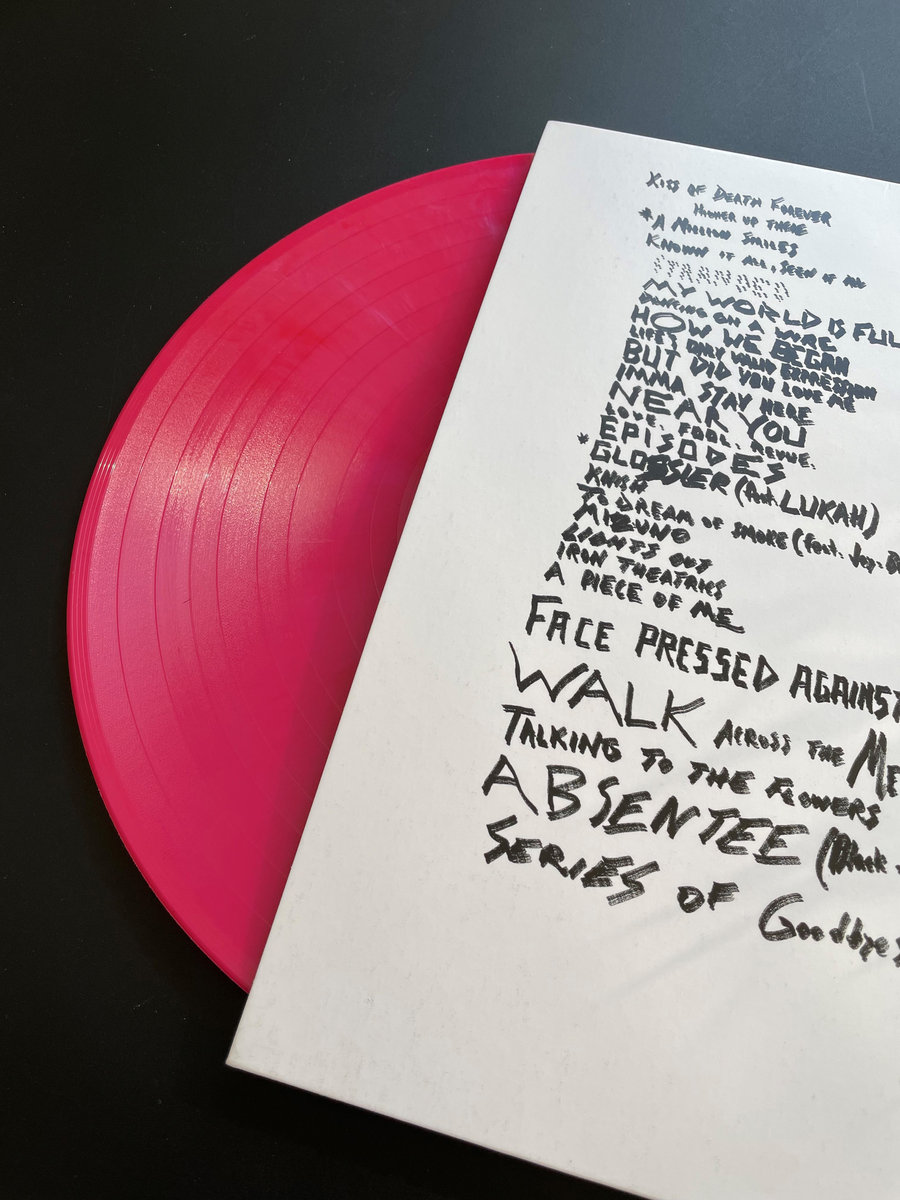 KISS OF DEATH FOREVER
HIGHER UP THERE
*A MILLION SMILES
KNOWN IT ALL, SEEN IT ALL
STRANDED
MY WORLD IS FUL
DANCING ON A WIRE
HOW WE BEGAN
LIFE'S ONLY VALID EXPRESSION
BUT DID YOU LOVE ME
IMMA STAY HERE
NEAR YOU
LOVE. FOOL. REVUE.
*EPISODES
GLOSSIER (feat. LUKAH)
KNISH
TO DREAM OF SMOKE (feat. Jay-
MIZUNO
LIGHTS OUT
IRON THEATRICS
A PIECE OF ME
FACE PRESSED AGAINST
WALK ACROSS THE ME
TALKING TO THE FLOWERS
ABSENTEE (Black
SERIES OF Goodbyes